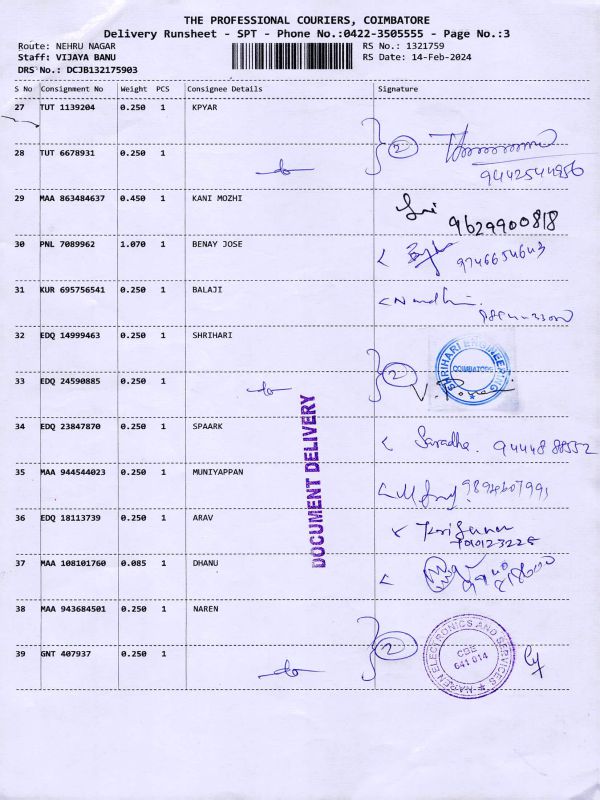 THE PROFESSIONAL COURIERS, COIMBATORE
Delivery Runsheet - SPT - Phone No.:0422-3505555 - Page No.:3
Route: NEHRU NAGAR RS No.: 1321759
Staff: VIJAYA BANU RS Date: 14-Feb-2024
DRS No.: DCJB132175903
S No Consignment No Weight PCS Consignee Details Signature
27 TUT 1139204 0.250 1 KPYAR
2
28 TUT 6678931 0.250 1
do 9442544956
29 MAA 863484637 0.450 1 KANI MOZHI
9629900818
30 PNL 7089962 1.070 1 BENAY JOSE
9746654643
31 KUR 695756541 0.250 1 BALAJI
Nandhini
32 EDQ 14999463 0.250 1 SHRIHARI
SHRIHARI ENGINEERING
COIMBATORE
33 EDQ 24590885 0.250 1 2
do
34 EDQ 23847870 0.250 1 SPAARK
Saradha. 9444888552
35 MAA 944544023 0.250 1 MUNIYAPPAN
9894607991
36 EDQ 18113739 0.250 1 ARAV
37 MAA 108101760 0.085 1 DHANU
38 MAA 943684501 0.250 1 NAREN
NAREN ELECTRONICS AND SERVICES
CBE
641 014
2
39 GNT 407937 0.250 1
do
DOCUMENT DELIVERY